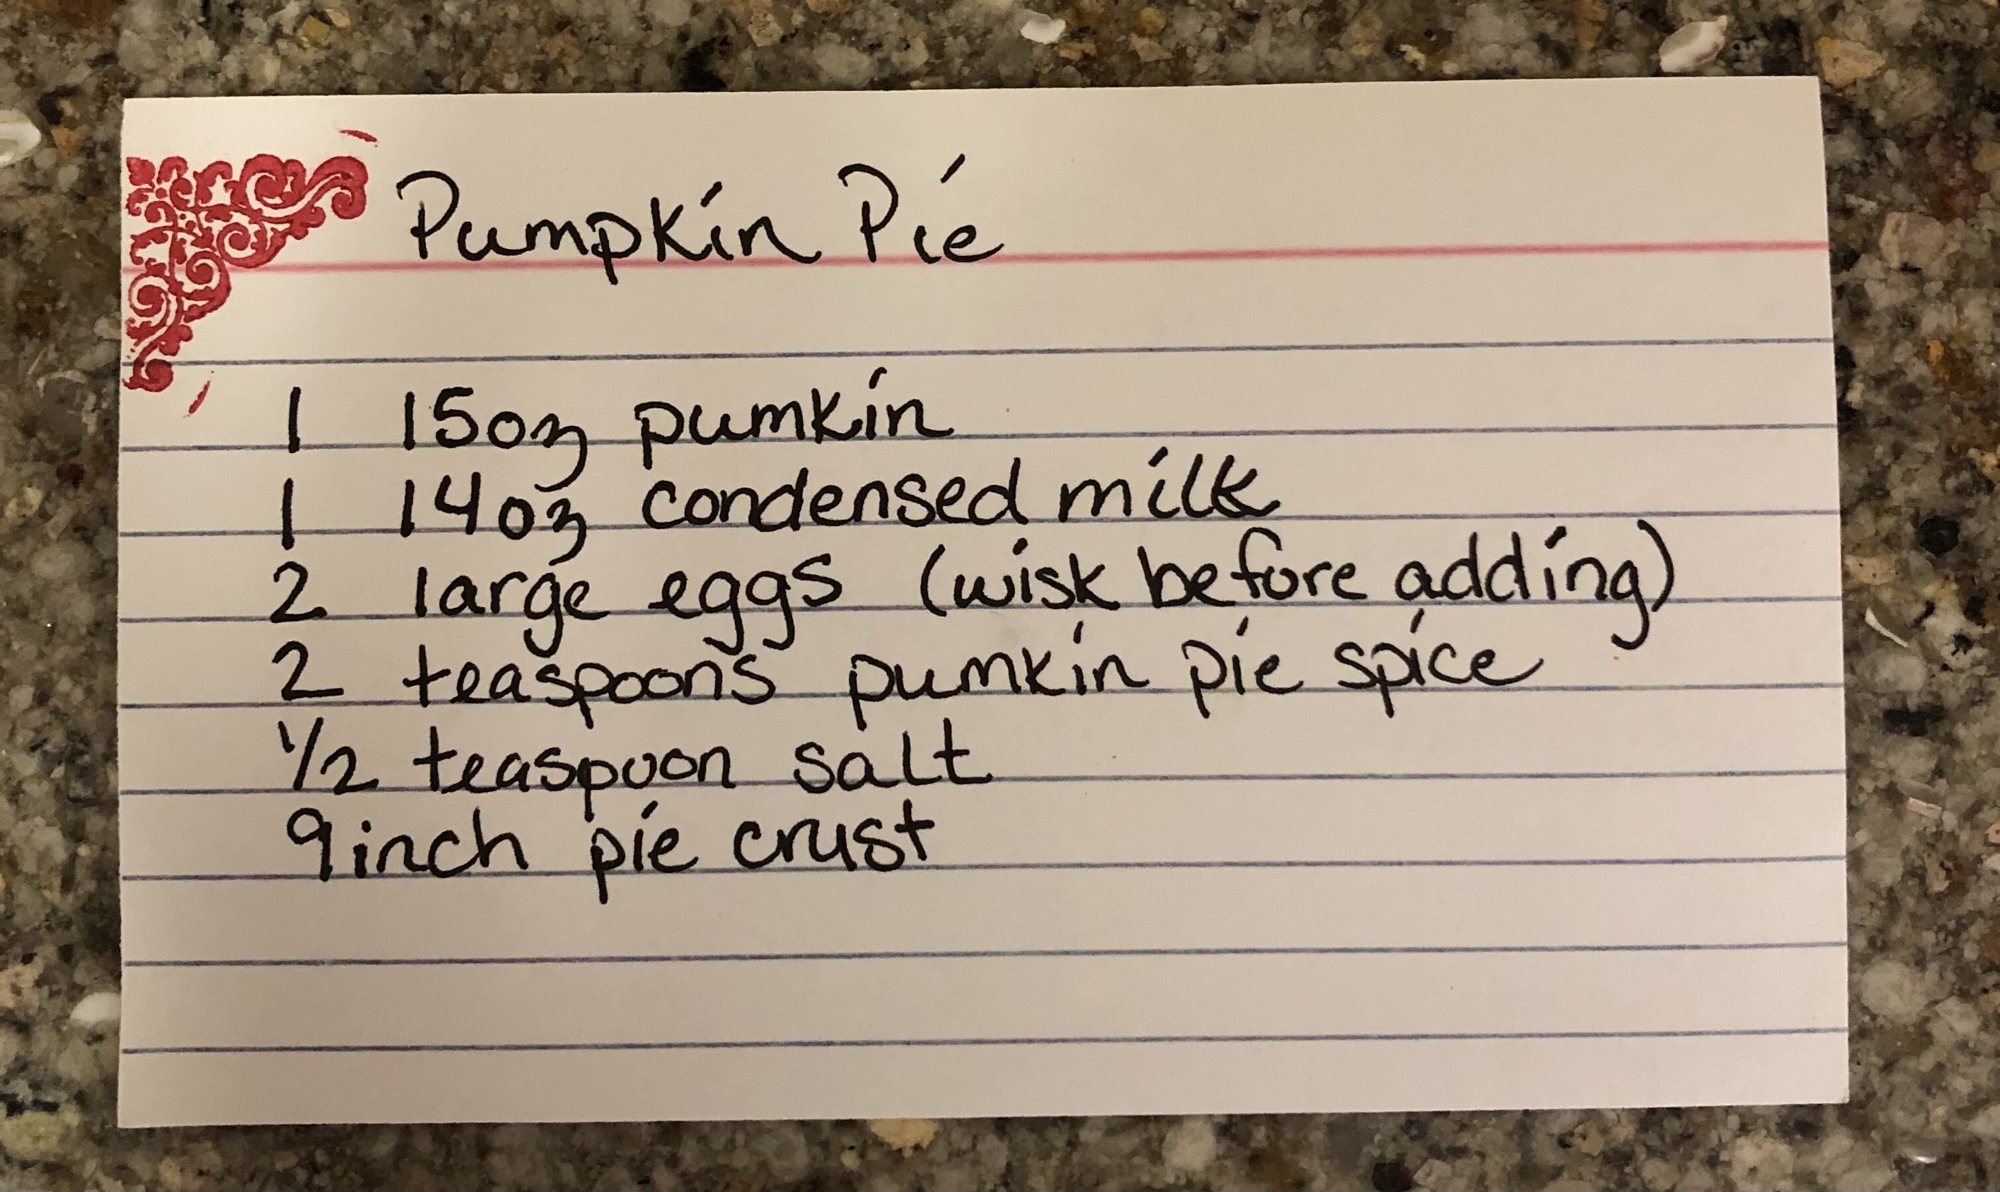 Pumpkin Pie
1 15oz pumkin
1 14oz condensed milk
2 large eggs (wisk before adding)
2 teaspoons pumkin pie spice
1/2 teaspoon salt
9inch pie crust